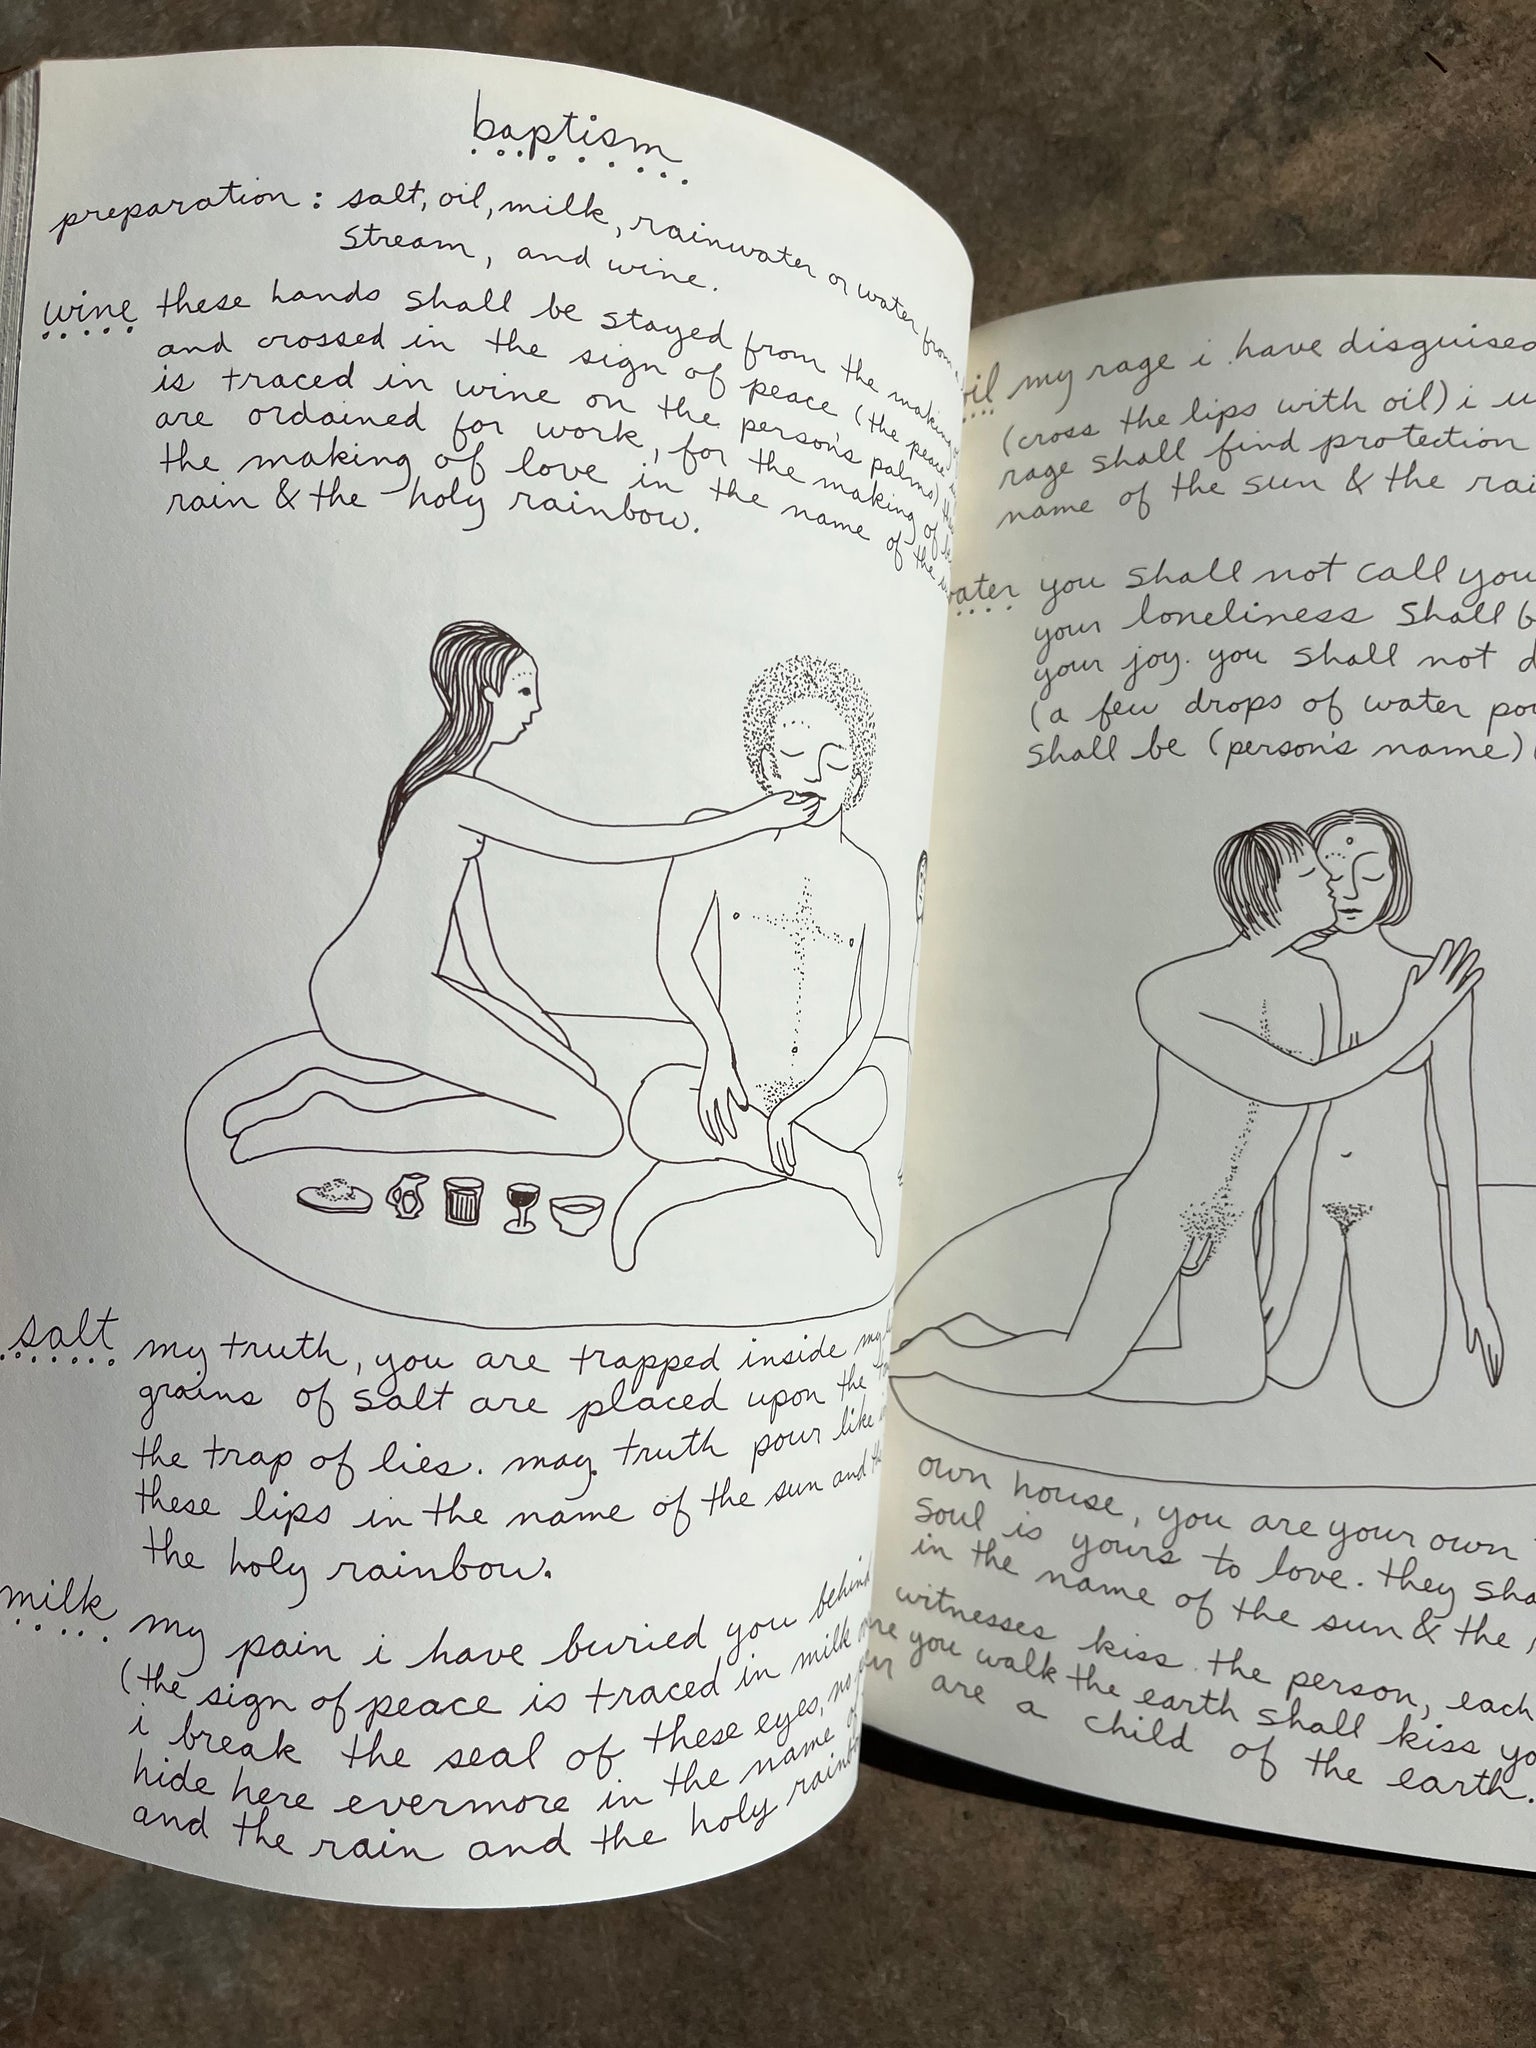 baptism
preparation: salt, oil, milk, rainwater or water from
stream, and wine.
wine these hands shall be stayed from the making
and crossed in the sign of peace (the peace
is traced in wine on the person's palms)
are ordained for work, for the making of
the making of love in the name of the
rain & the holy rainbow.
salt my truth, you are trapped inside my
grains of salt are placed upon the
the trap of lies. may truth pour like
these lips in the name of the sun and the
the holy rainbow.
milk my pain i have buried you behind
(the sign of peace is traced in milk
i break the seal of these eyes, no
hide here evermore in the name of
and the rain and the holy
oil my rage i have disguised
(cross the lips with oil) i
rage shall find protection
name of the sun & the
water you shall not call
your loneliness shall
your joy. you shall not
(a few drops of water
shall be (person's name)
own house, you are your own
soul is yours to love. they
in the name of the sun & the
witnesses kiss the person, each
you walk the earth shall kiss
are a child of the earth.